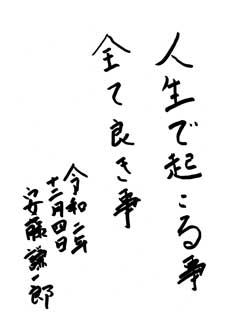 人生で起こる事
全て良き事
令和二年
十二月四日
安藤謙一郎